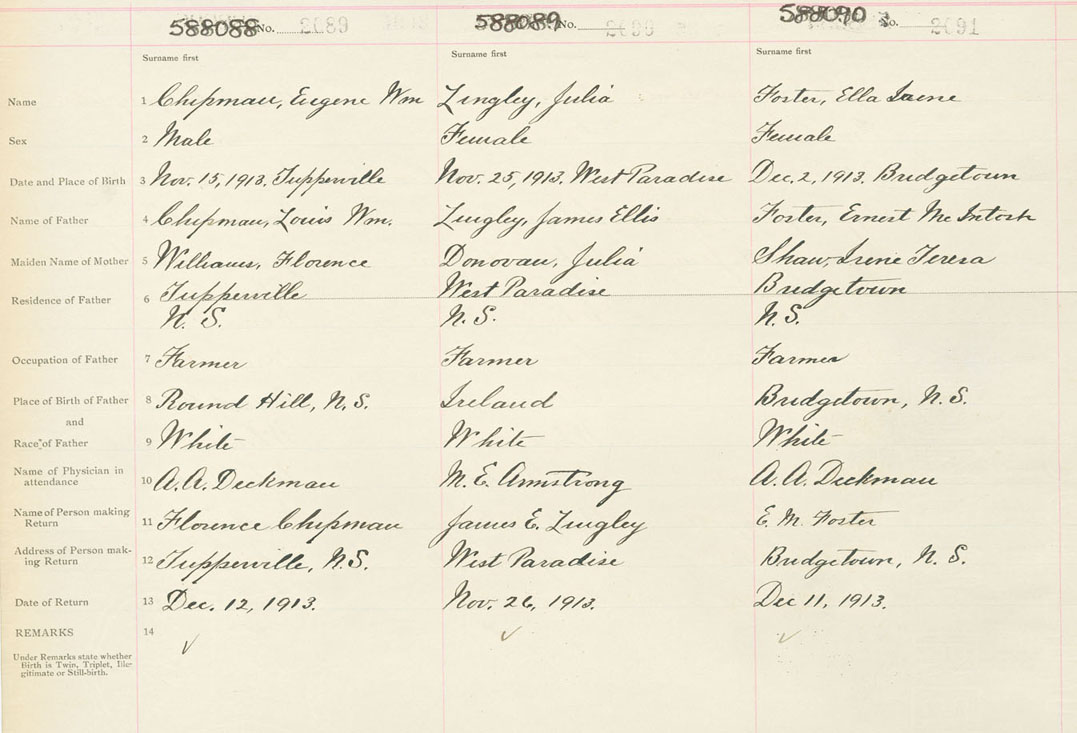 588088 No. 2089 588089 No. 2090 588090 No. 2091
Surname first Surname first Surname first
Name 1 Chipman, Eugene Wm Lingley, Julia Foster, Ella
Sex 2 Male Female Female
Date and Place of Birth 3 Nov. 15, 1913. Tupperville Nov. 25, 1913. West Paradise Dec. 2, 1913. Bridgetown
Name of Father 4 Chipman, Louis Wm. Lingley, James Ellis Foster, Ernest McIntosh
Maiden Name of Mother 5 Williams, Florence Donovan, Julia Shaw, Irene Teresa
Residence of Father 6 Tupperville West Paradise Bridgetown
N. S. N. S. N. S.
Occupation of Father 7 Farmer Farmer Farmer
Place of Birth of Father 8 Round Hill, N. S. Ireland Bridgetown, N. S.
and
Race of Father 9 White White White
Name of Physician in
attendance 10 A. A. Deckman M. E. Armstrong A. A. Deckman
Name of Person making
Return 11 Florence Chipman James E. Lingley E. M. Foster
Address of Person mak-
ing Return 12 Tupperville, N. S. West Paradise Bridgetown, N. S.
Date of Return 13 Dec. 12, 1913. Nov. 26, 1913. Dec 11, 1913.
REMARKS 14
Under Remarks state whether
Birth is Twin, Triplet, Ille-
gitimate or Still-birth.